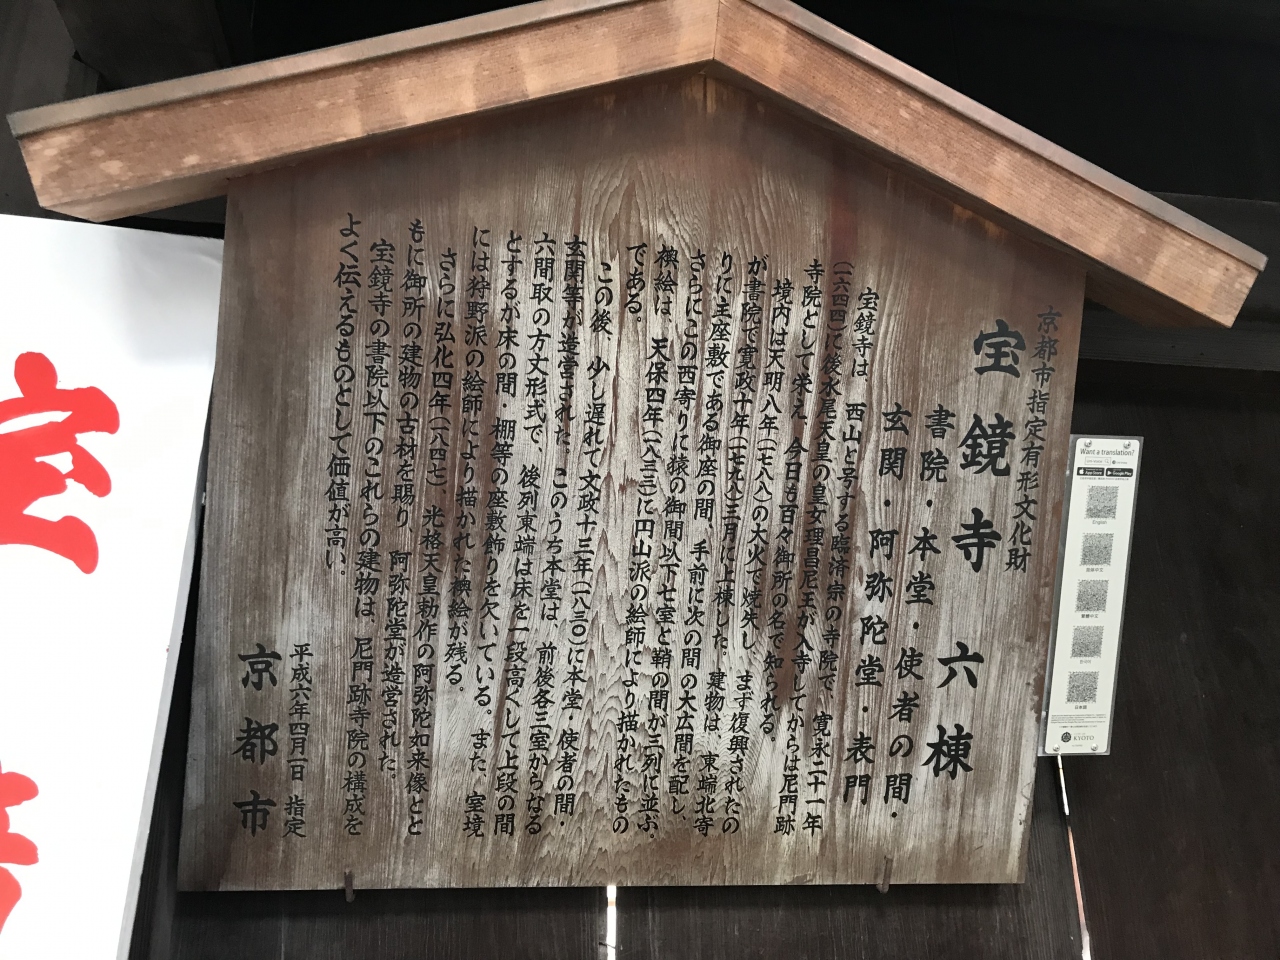 京都市指定有形文化財
宝鏡寺 六棟
書院・本堂・使者の間・
玄関・阿弥陀堂・表門
宝鏡寺は、西山と号する臨済宗の寺院で、寛永二十一年
(一六四四)に後水尾天皇の皇女理昌尼王が入寺してからは尼門跡
寺院として栄え、今日も百々御所の名で知られる。
境内は天明八年(一七八八)の大火で焼失し、まず復興されたの
が書院で寛政十年(一七九八)三月に上棟した。建物は、東端北寄
りに主座敷である御座の間、手前に次の間の大広間を配し、
さらにこの西寄りに猿の御間以下七室と鞘の間が三列に並ぶ。
襖絵は、天保四年(一八三三)に円山派の絵師により描かれたもの
である。
この後、少し遅れて文政十三年(一八三〇)に本堂・使者の間・
玄関等が造営された。このうち本堂は、前後各三室からなる
六間取の方丈形式で、後列東端は床を一段高くして上段の間
とするが床の間・棚等の座敷飾りを欠いている。また、室境
には狩野派の絵師により描かれた襖絵が残る。
さらに弘化四年(一八四七)、光格天皇勅作の阿弥陀如来像とと
もに御所の建物の古材を賜り、阿弥陀堂が造営された。
宝鏡寺の書院以下のこれらの建物は、尼門跡寺院の構成を
よく伝えるものとして価値が高い。
平成六年四月一日 指定
京都市
Want a translation?
App Store
Google Play
English
简体中文
繁體中文
한국어
日本語
KYOTO